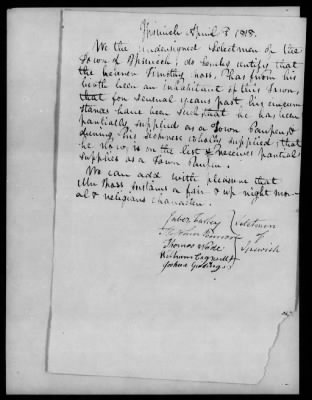 Ipswich April 8 1818.
We the undersigned Selectmen of the
Town of Ipswich, do hereby certify that
the bearer Timothy Ross, has from his
birth been an inhabitant of this Town,
that for several years past his circum
stances have been such that he has been
partially supplied as a Town Pauper, &
during his sickness wholly supplied, that
he now is on the list & receives partial
supplies as a Town Pauper.
We can add with pleasure that
Mr Ross sustains a fair & up right mor-
al & religious character.
Jabez Farley
Selectmen
of
Thomas Wade
Ipswich
William
Joshua Giddings